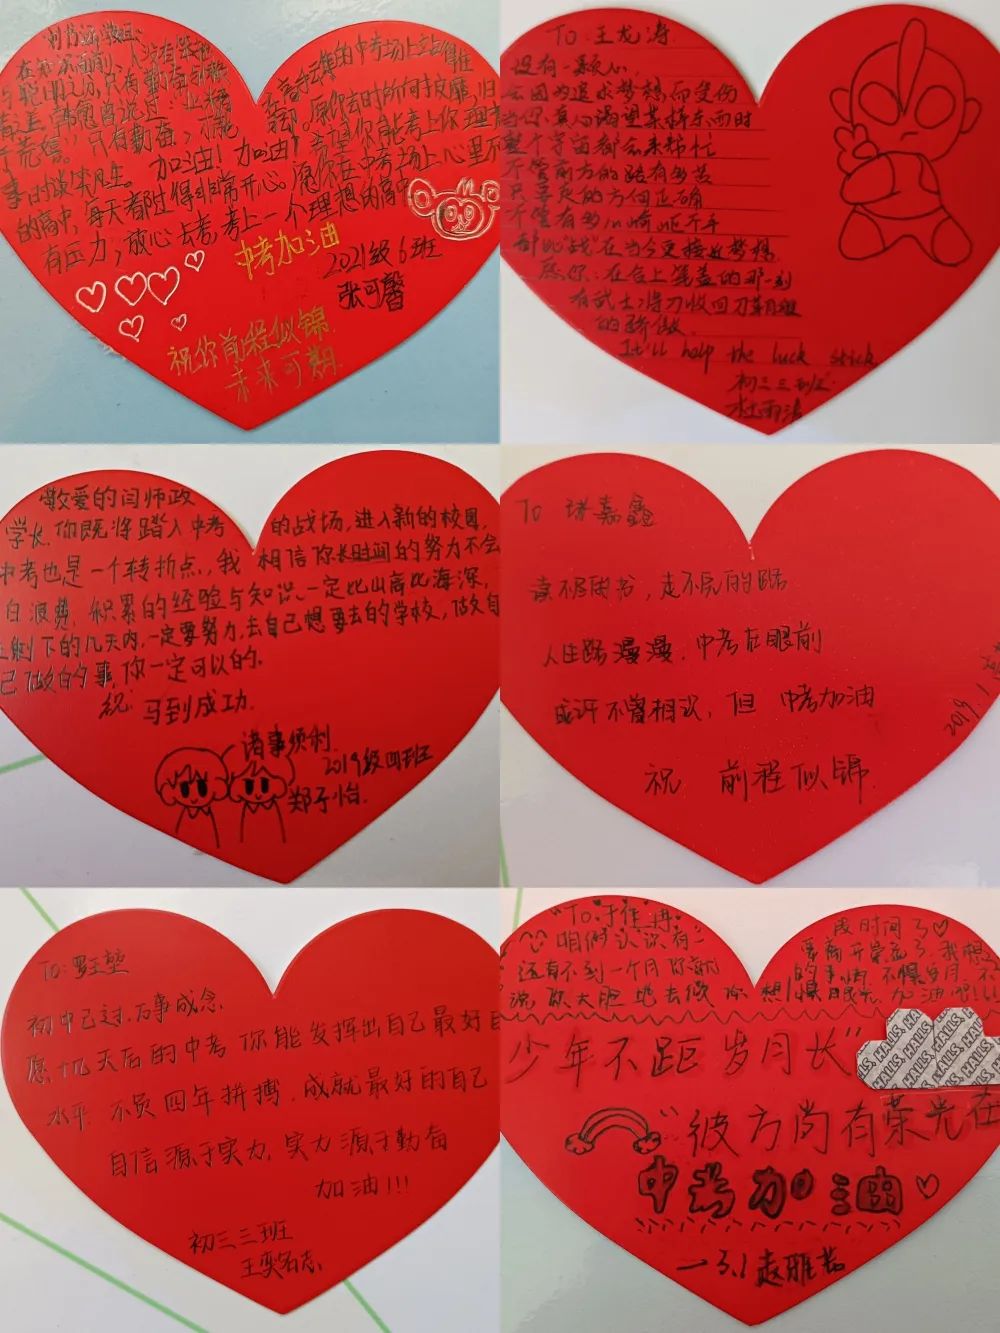 在知识面前，人没有笨拙
与聪明之分，只有勤奋与懒
加油！加油！希望你能考上你理
事时谈笑风生。
的高中，每天都过得非常开心。愿你在中考场上，心里不
有压力，放心去考，考上一个理想的高中
中考加油
2021级6班
张可馨
祝你前程似锦
未来可期
TO：王龙涛
没有一颗心，
会因为追求梦想而受伤
当你真心渴望某样东西时
整个宇宙都会来帮忙
不管前方的路有多苦
只要走的方向正确
不管有多崎岖不平
都比战在当今更接近梦想
愿你：在合上笔盖的那一刻
有武士将刀收回刀鞘般
的骄傲
It'll help the luck stick
初三三班
敬爱的闫师政
学长，你既将踏入中考的战场，进入新的校园，
中考也是一个转折点，我相信你长时间的努力不会
白浪费，积累的经验与知识一定比山高比海深，
剩下的几天内，一定要努力，去自己想要去的学校，做自
己做的事，你一定可以的。
祝：马到成功
诸事顺利
2019级四班
郑子怡
TO 嘉鑫
读不尽的书，走不完的路
人生路漫漫，中考在眼前
或许不曾相识，但 中考加油
祝 前程似锦
2019.1
To：
初中已过，万事成念
愿十几天后的中考你能发挥出自己最好的
水平，不负四年拼搏，成就最好的自己
自信源于实力，实力源于勤奋
加油！！！
初三三班
王奕名志
To：于佳冉
咱俩认识有一段时间了
还有不到一个月你就要离开荣成了，我想
说你大胆地去做你想
加油吧！！！
少年不距岁月长"
"彼方尚有荣光在
中考加油
—3.1赵雅芸
HALLS.